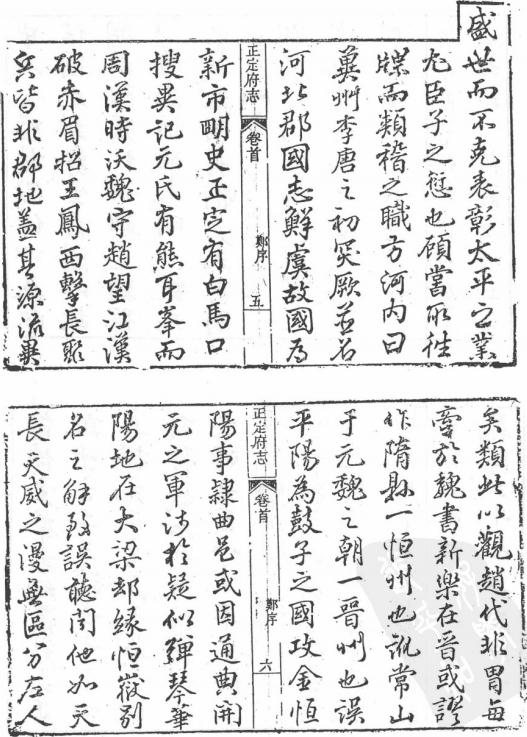 盛世而不克表彰太平之業
尤臣子之愆也顧當取往
牒而類稽之職方河内曰
冀州李唐之初突厥並名
河北郡國志鮮虞故國為
正定府志 卷首 鄭序 五
新市明史正定有白馬口
搜異記元氏有熊耳峯而
周漢時沃魏守趙望江漢
破赤眉招王鳳西擊長聚
皆非郡地蓋其源流異
矣類此以觀趙代非冒每
牽於魏書新樂在晉或謬
作隋縣一恒州也訛常山
于元魏之朝一晉州也誤
平陽為鼓子之國攻金恒
正定府志 卷首 鄭序 六
陽事隸曲邑或因通典開
元之軍涉於疑似彈琴華
陽地在大梁却緣恒嶽别
名之解致誤聽聞他如天
長天威之漫無區分左人